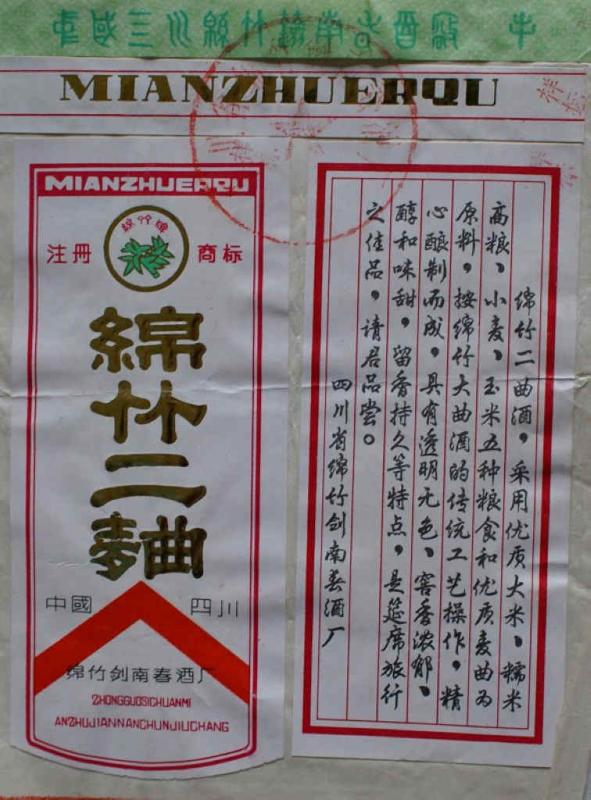 MIANZHUERQU
MIANZHUERQU
綿竹牌
注册 商标
綿竹二麯
中國 四川
绵竹剑南春酒厂
ZHONGGUOSICHUANMI
ANZHUJIANNANCHUNJIUCHANG
绵竹二曲酒，采用优质大米、糯米
高粮、小麦、玉米五种粮食和优质麦曲为
原料，按绵竹大曲酒的传统工艺操作，精
心酿制而成，具有透明无色、窖香浓郁、
醇和味甜，留香持久等特点，是筵席旅行
之佳品，请君品尝。
四川省绵竹剑南春酒厂